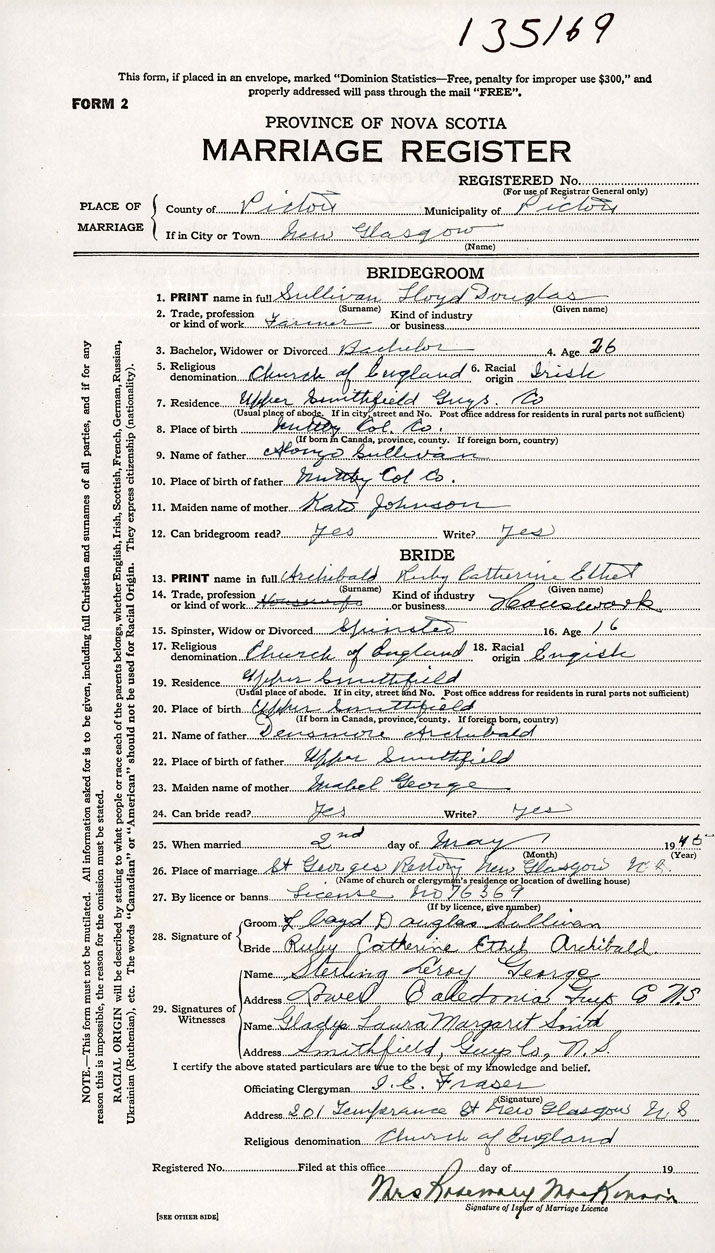 135169
This form, if placed in an envelope, marked "Dominion Statistics—Free, penalty for improper use $300," and
properly addressed will pass through the mail "FREE".
FORM 2
PROVINCE OF NOVA SCOTIA
MARRIAGE REGISTER
REGISTERED No.
(For use of Registrar General only)
PLACE OF MARRIAGE
County of Pictou Municipality of Pictou
If in City or Town New Glasgow
(Name)
BRIDEGROOM
1. PRINT name in full Sullivan Lloyd Douglas
(Surname) (Given name)
2. Trade, profession or kind of work Farmer Kind of industry or business
3. Bachelor, Widower or Divorced Bachelor 4. Age 26
5. Religious denomination Church of England 6. Racial origin Irish
7. Residence Upper Smithfield Guys. Co
(Usual place of abode. If in city, street and No. Post office address for residents in rural parts not sufficient)
8. Place of birth Nuttby Col. Co.
(If born in Canada, province, county. If foreign born, country)
9. Name of father Alonzo Sullivan
10. Place of birth of father Nuttby Col Co.
11. Maiden name of mother Kate Johnson
12. Can bridegroom read? Yes Write? Yes
BRIDE
13. PRINT name in full Archibald Ruby Catherine Ethel
(Surname) (Given name)
14. Trade, profession or kind of work Housewife Kind of industry or business Housework
15. Spinster, Widow or Divorced Spinster 16. Age 16
17. Religious denomination Church of England 18. Racial origin Engish
19. Residence Upper Smithfield
(Usual place of abode. If in city, street and No. Post office address for residents in rural parts not sufficient)
20. Place of birth Upper Smithfield
(If born in Canada, province, county. If foreign born, country)
21. Name of father Densmore Archibald
22. Place of birth of father Upper Smithfield
23. Maiden name of mother Mabel George
24. Can bride read? Yes Write? Yes
25. When married 2nd day of May 1945
(Month) (Year)
26. Place of marriage St Georges Rectory New Glasgow N.S.
(Name of church or clergyman's residence or location of dwelling house)
27. By licence or banns License No 76369
(If by licence, give number)
28. Signature of
Groom Lloyd Douglas Sullivan
Bride Ruby Catherine Ethel Archibald
29. Signatures of Witnesses
Name Sterling Leroy George
Address Lower Caledonia Guys Co N.S
Name Gladys Laura Margaret Smith
Address Smithfield, Guys Co, N.S.
I certify the above stated particulars are true to the best of my knowledge and belief.
Officiating Clergyman I.E. Fraser
(Signature)
Address 201 Temperance St New Glasgow N S
Religious denomination Church of England
Registered No. Filed at this office day of 19
Mrs Rosemary MacKinnon
Signature of Issuer of Marriage Licence
[SEE OTHER SIDE]
NOTE.—This form must not be mutilated. All information asked for is to be given, including full Christian and surnames of all parties, and if for any
reason this is impossible, the reason for the omission must be stated.
RACIAL ORIGIN will be described by stating to what people or race each of the parents belongs, whether English, Irish, Scottish, French, German, Russian,
Ukrainian (Ruthenian), etc. The words "Canadian" or "American" should not be used for Racial Origin. They express citizenship (nationality).